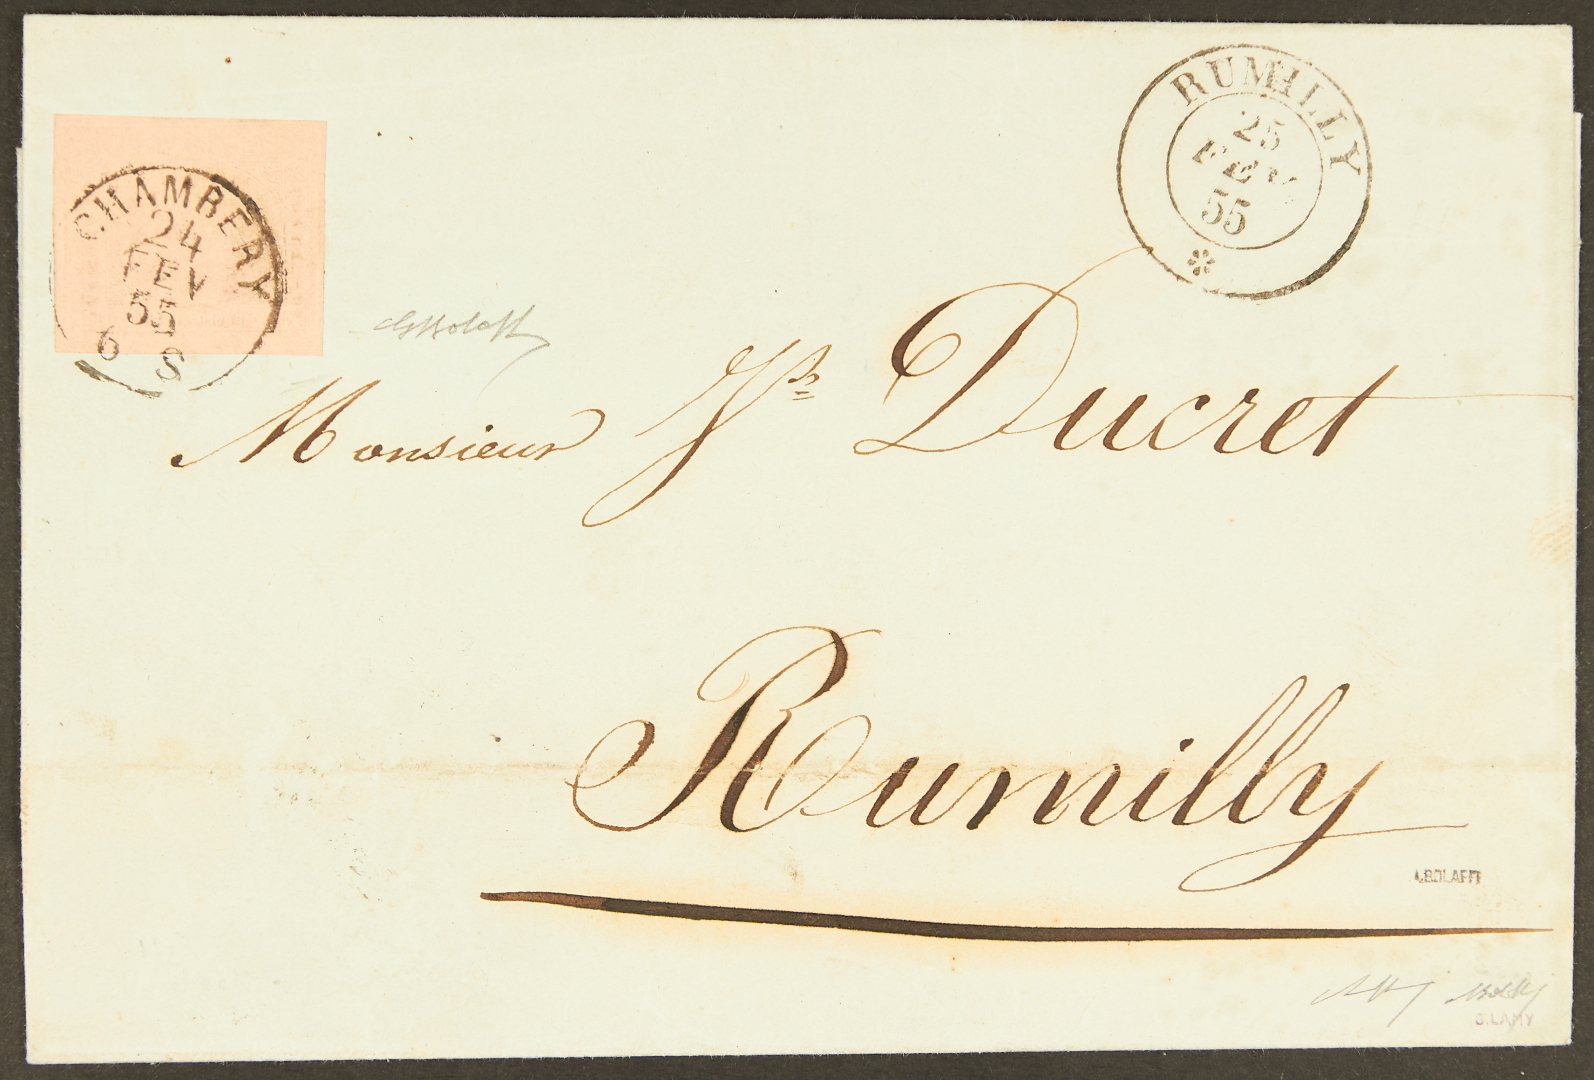 CHAMBERY
24
FEV
55
6 S
RUMILLY
25
FEV
55
Monsieur Jph Ducret
Rumilly
A.BOLAFFI
G.LAMY